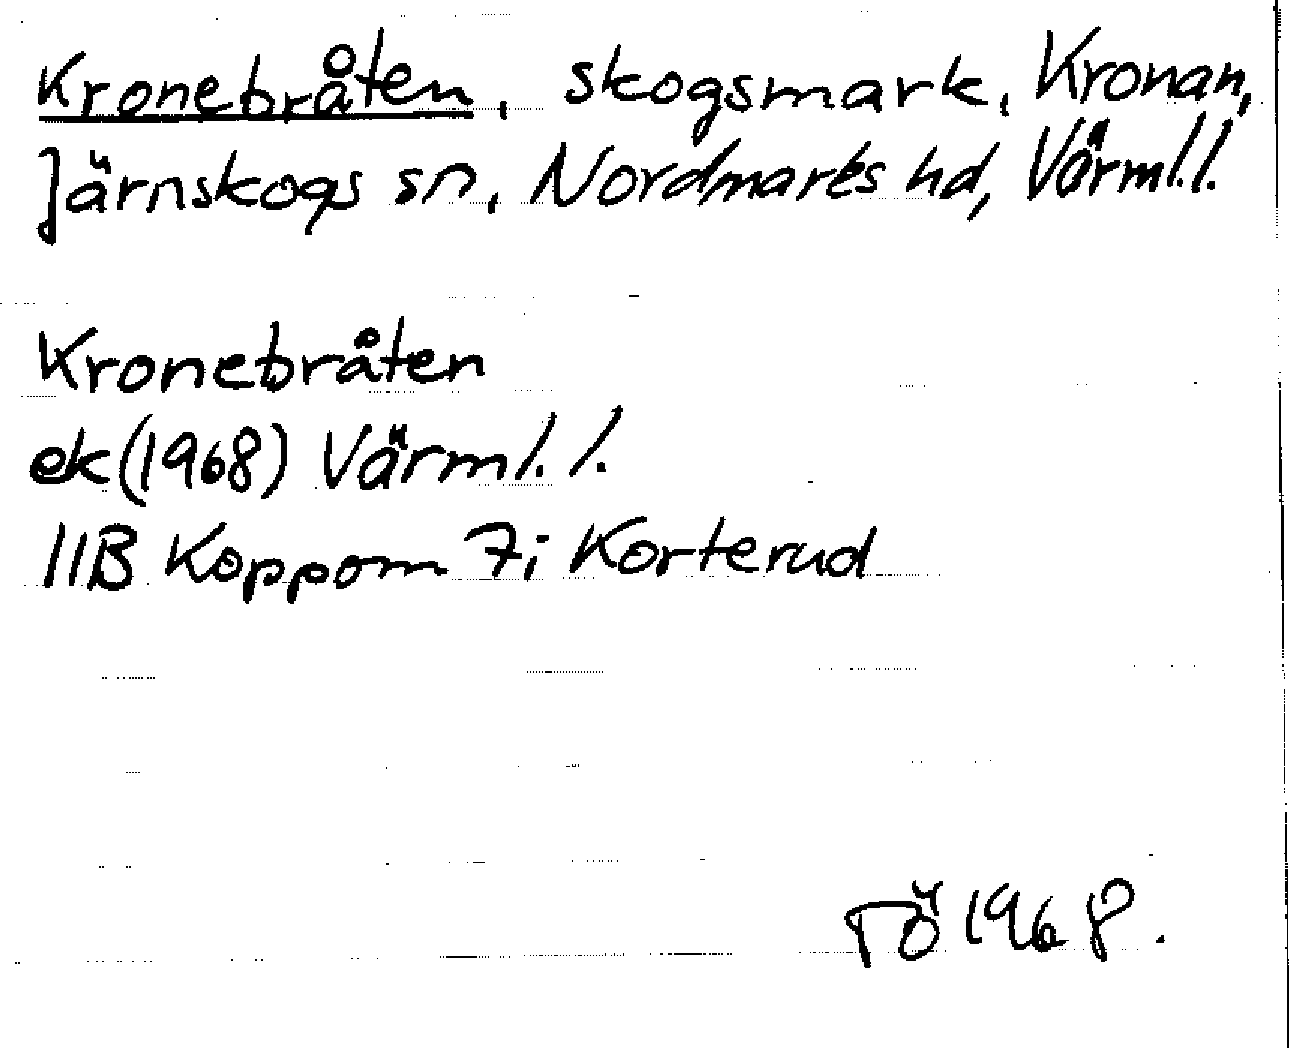 Kronebråten, skogsmark, Kronan,
Järnskogs sn, Nordmarks hd, Värml.l.
Kronebråten
ek(1968) Värml.l.
11B Koppom 7i Korterud
TÖ 1968.